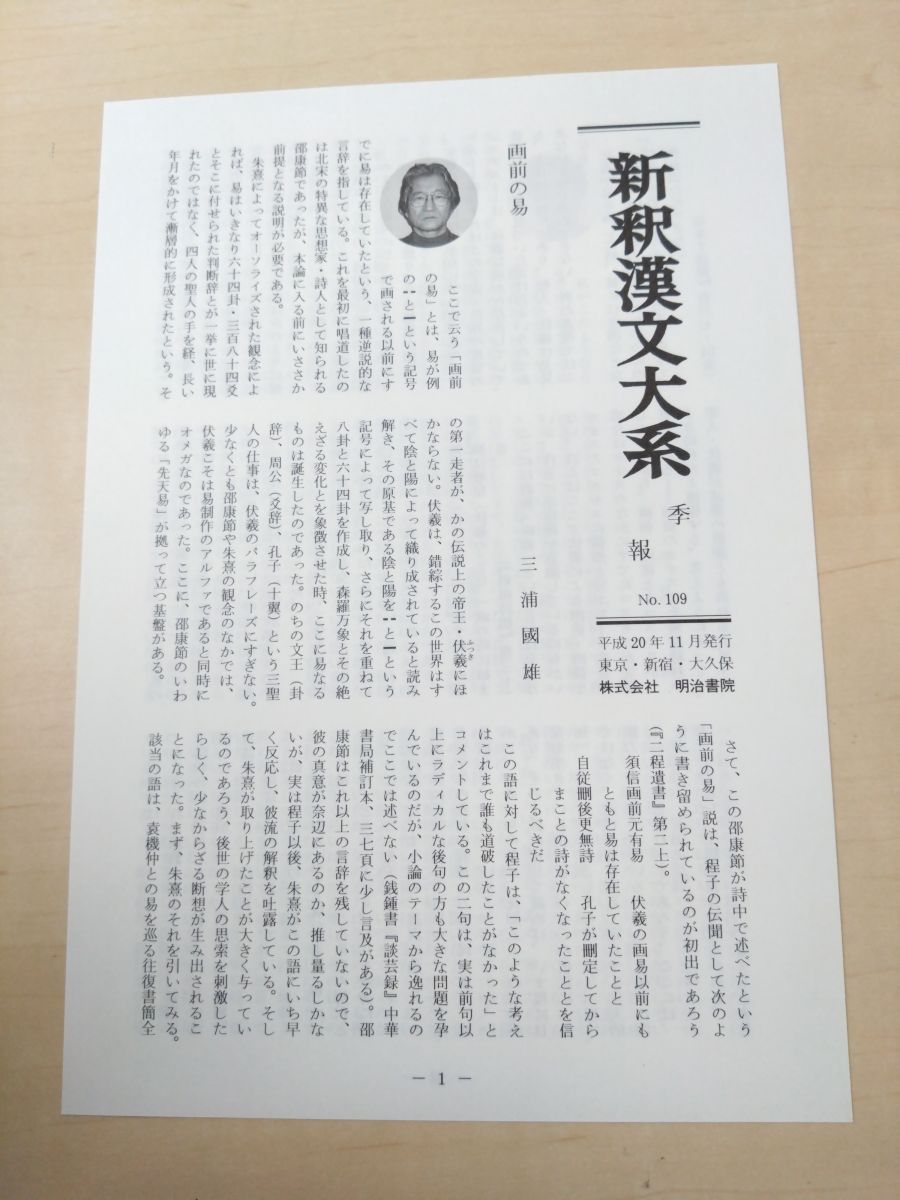 新釈漢文大系
季報
No. 109
平成20年11月発行
東京・新宿・大久保
株式会社 明治書院
画前の易
三浦國雄
ここで云う「画前
の易」とは、易が例
の⚋と⚊という記号
で画される以前にす
でに易は存在していたという、一種逆説的な
言辞を指している。これを最初に唱道したの
は北宋の特異な思想家・詩人として知られる
邵康節であったが、本論に入る前にいささか
前提となる説明が必要である。
朱熹によってオーソライズされた観念によ
れば、易はいきなり六十四卦・三百八十四爻
とそこに付せられた判断辞とが一挙に世に現
れたのではなく、四人の聖人の手を経、長い
年月をかけて漸層的に形成されたという。そ
の第一走者が、かの伝説上の帝王・伏羲にほ
ふつき
かならない。伏羲は、錯綜するこの世界はす
べて陰と陽によって織り成されていると読み
解き、その原基である陰と陽を⚋と⚊という
記号によって写し取り、さらにそれを重ねて
八卦と六十四卦を作成し、森羅万象とその絶
えざる変化とを象徴させた時、ここに易なる
ものは誕生したのであった。のちの文王（卦
辞）、周公（爻辞）、孔子（十翼）という三聖
人の仕事は、伏羲のパラフレーズにすぎない。
少なくとも邵康節や朱熹の観念のなかでは、
伏羲こそは易制作のアルファであると同時に
オメガなのであった。ここに、邵康節のいわ
ゆる「先天易」が拠って立つ基盤がある。
さて、この邵康節が詩中で述べたという
「画前の易」説は、程子の伝聞として次のよ
うに書き留められているのが初出であろう
（『二程遺書』第二上）。
須信画前元有易 伏羲の画易以前にも
ともと易は存在していたことと
自従刪後更無詩 孔子が刪定してから
まことの詩がなくなったこととを信
じるべきだ
この語に対して程子は、「このような考え
はこれまで誰も道破したことがなかった」と
コメントしている。この二句は、実は前句以
上にラディカルな後句の方も大きな問題を孕
んでいるのだが、小論のテーマから逸れるの
でここでは述べない（銭鍾書『談芸録』中華
書局補訂本、三七頁に少し言及がある）。邵
康節はこれ以上の言辞を残していないので、
彼の真意が奈辺にあるのか、推し量るしかな
いが、実は程子以後、朱熹がこの語にいち早
く反応し、彼流の解釈を吐露している。そし
て、朱熹が取り上げたことが大きく与ってい
るのであろう、後世の学人の思索を刺激した
らしく、少なからざる断想が生み出されるこ
とになった。まず、朱熹のそれを引いてみる。
該当の語は、袁機仲との易を巡る往復書簡全
― 1 ―